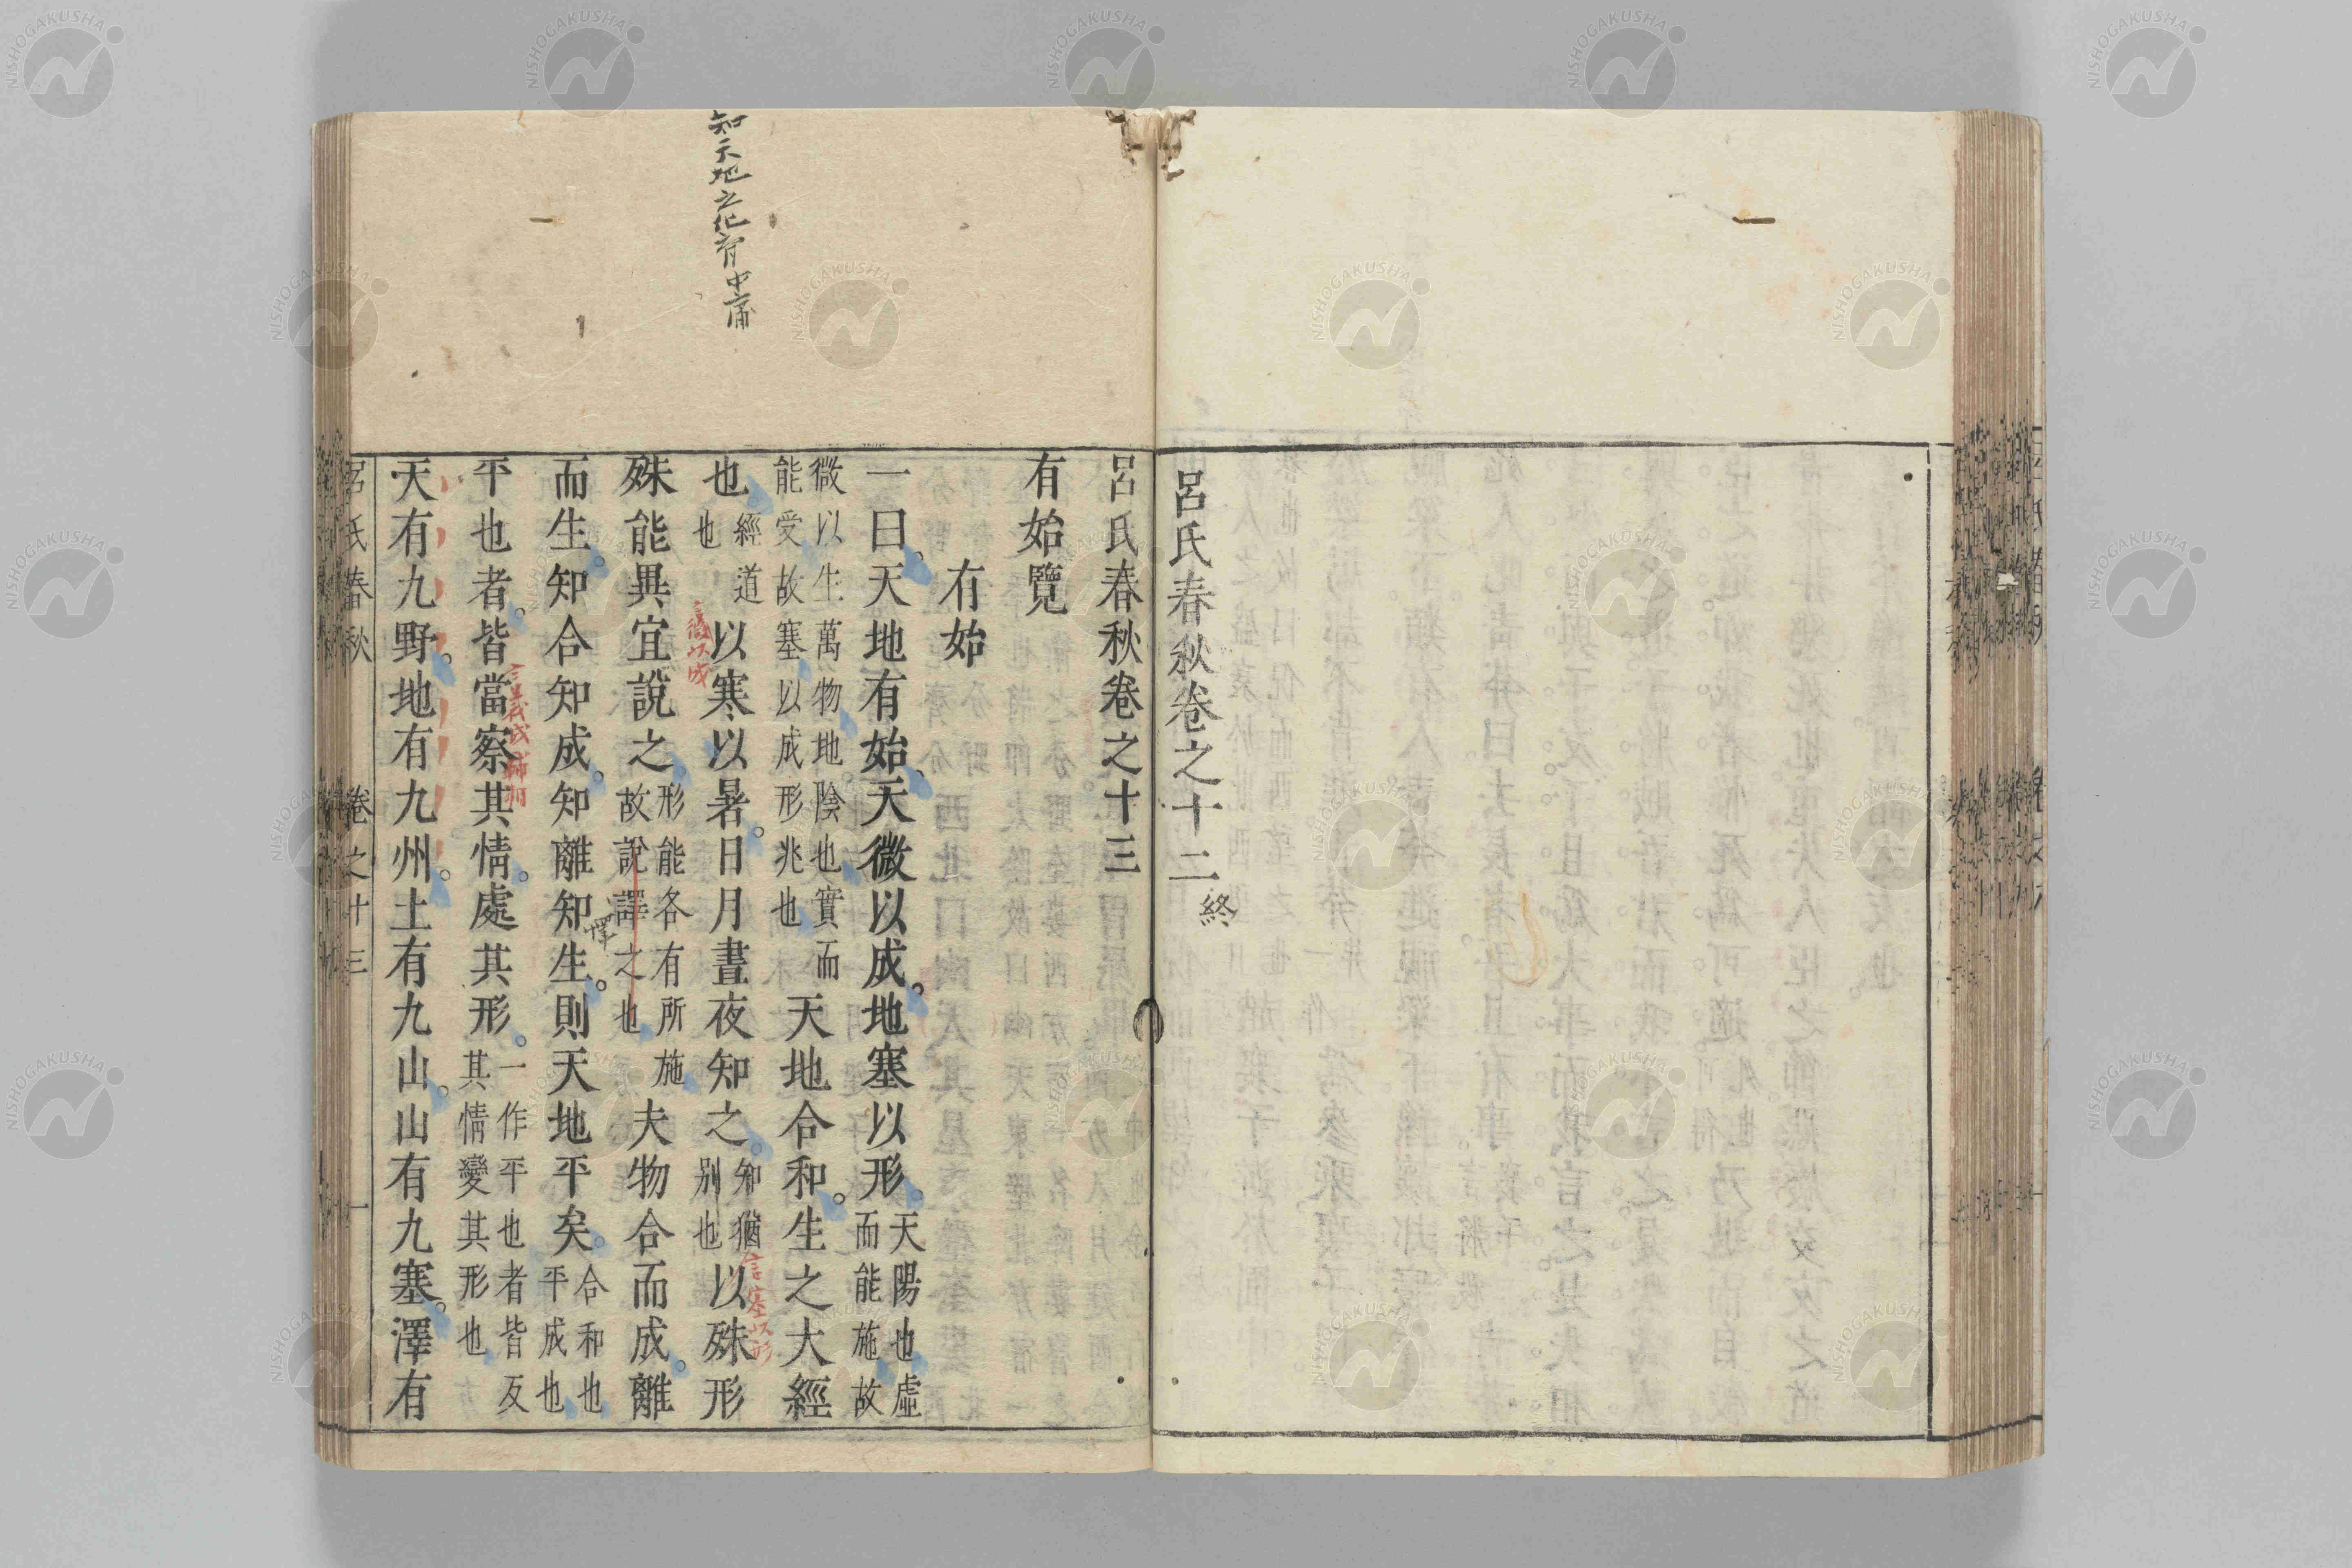 呂氏春秋卷之十二終
呂氏春秋卷之十三
有始覽
有始
一曰。天地有始。天微以成。地塞以形。天陽也虛而能施故
微以生萬物地陰也實而能受故塞以成形兆也天地合和。生之大經
也。經道也以寒以暑。日月晝夜知之。知猶別也以殊形
殊能異宜說之。形能各有所施故說譯之也夫物合而成。離
而生。知合知成。知離知生。則天地平矣。合和也平成也
平也者。皆當察其情。處其形。一作平也者皆反其情變其形也
天有九野。地有九州。土有九山。山有九塞。澤有
呂氏春秋 卷之十三 一
知天地之化育中庸
言微以成
言塞以形
釋
NISHOGAKUSHA